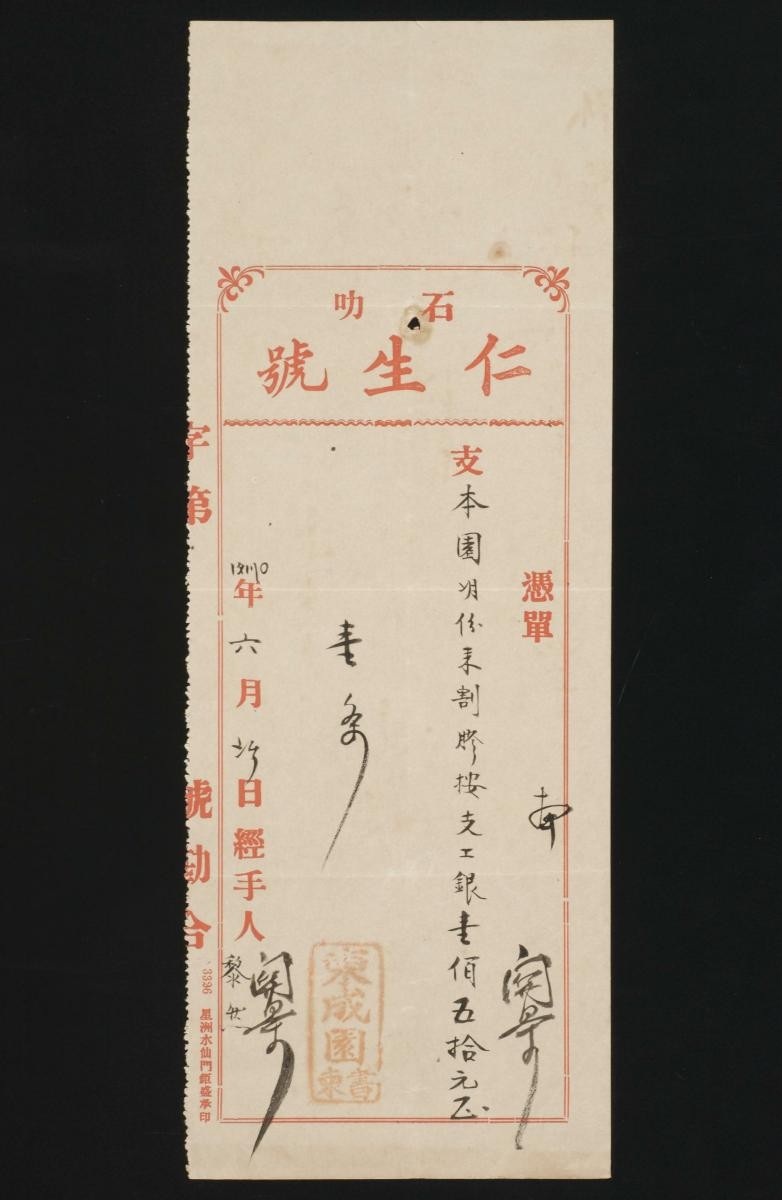 石叻
仁生號
憑單
支本園 份來割膠按支工銀壹佰五拾元正
壹条
年六月 日經手人
黎
東成園
書柬
字第
號勘合
3326 星洲水仙門鉅盛承印